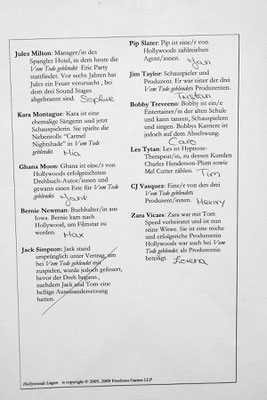 Jules Milton: Manager/in des
Spangles Hotel, in dem heute die
Vom Tode geblendet Eric Party
stattfindet. Vor sechs Jahren hat
Jules ein Feuer verursacht, bei
dem drei Sound Stages
abgebrannt sind.
Sophie
Kara Montague: Kara ist eine
ehemalige Sängerin und jetzt
Schauspielerin. Sie spielte die
Nebenrolle "Carmel
Nightshade" in Vom Tode
geblendet.
Mia
Ghana Moon: Ghana ist eine/r von
Hollywoods erfolgreichsten
Drehbuch-Autor/innen und
gewann einen Eric für Vom Tode
geblendet.
Jane
Bernie Newman: Buchhalter/in aus
Iowa. Bernie kam nach
Hollywood, um Filmstar zu
werden.
Max
Jack Simpson: Jack stand
ursprünglich unter Vertrag, um
bei Vom Tode geblendet mit
zuspielen, wurde jedoch gefeuert,
bevor der Dreh begann,
nachdem Jack und Tom eine
heftige Auseinandersetzung
hatten.
Pip Slater: Pip ist eine/r von
Hollywoods zahlreichen
Agent/innen.
Jan
Jim Taylor: Schauspieler und
Produzent. Er war einer der drei
Vom Tode geblendet Produzenten.
Tristan
Bobby Treveeno: Bobby ist ein/e
Entertainer/in der alten Schule
und kann tanzen, Schauspielern
und singen. Bobbys Karriere ist
jedoch auf dem Abschwung.
Caro
Les Tytan: Les ist Hypnose-
Therapeut/in, zu dessen Kunden
Charles Henderson-Plum sowie
Mel Cutter zählen.
Tim
CJ Vasquez: Eine/r von den drei
Vom Tode geblendet
Produzent/innen.
Henry
Zara Vicars: Zara war mit Tom
Speed verheiratet und ist nun
seine Witwe. Sie ist eine reiche
und erfolgreiche Produzentin
Hollywoods war auch bei Vom
Tode geblendet als Produzentin
beteiligt.
Lorena
Hollywoods Lügen is copyright © 2005, 2009 Freeform Games LLP